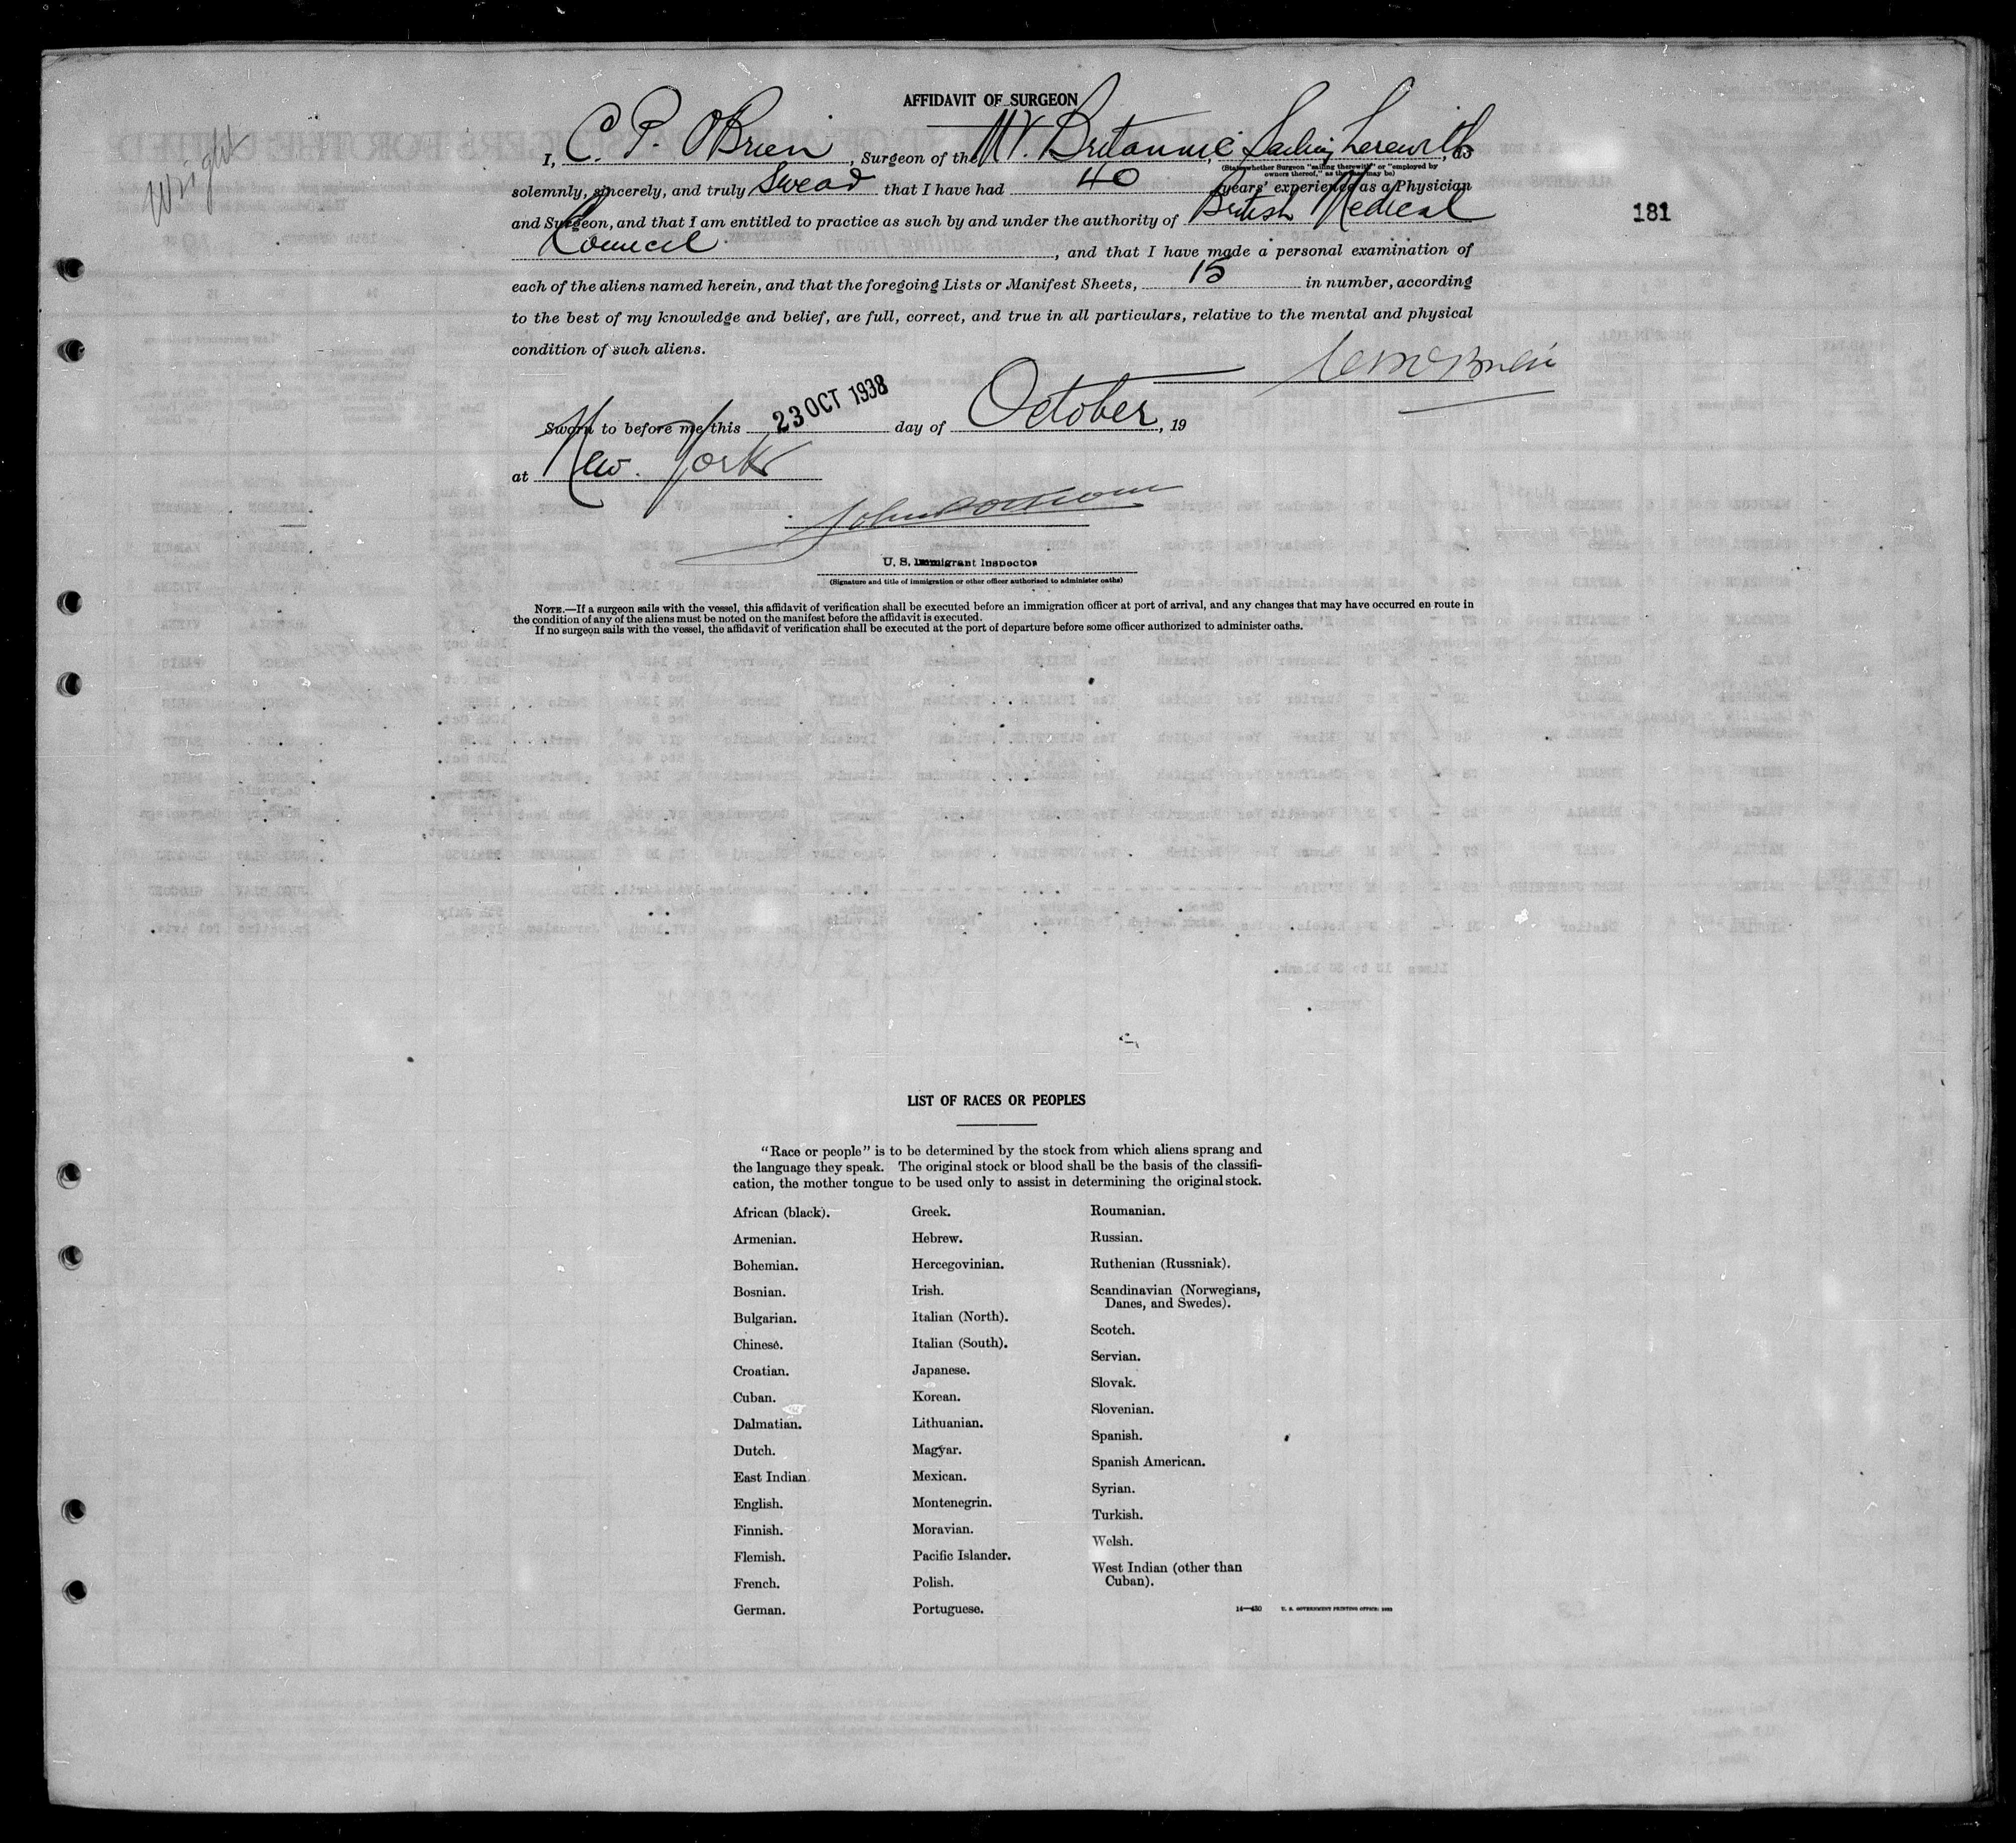 Wright
AFFIDAVIT OF SURGEON
I, C. P. O'Brien, Surgeon of the M.V. Britannic, Sailing therewith, do
(State whether Surgeon "sailing therewith" or "employed by
owners thereof," as the case may be)
solemnly, sincerely, and truly Swear that I have had 40 years' experience as a Physician
and Surgeon, and that I am entitled to practice as such by and under the authority of British Medical
Council, and that I have made a personal examination of
181
each of the aliens named herein, and that the foregoing Lists or Manifest Sheets, 15 in number, according
to the best of my knowledge and belief, are full, correct, and true in all particulars, relative to the mental and physical
condition of such aliens.
Sworn to before me this 23 OCT 1938 day of October, 19
at New York
U. S. Immigrant Inspector
(Signature and title of immigration or other officer authorized to administer oaths)
NOTE.—If a surgeon sails with the vessel, this affidavit of verification shall be executed before an immigration officer at port of arrival, and any changes that may have occurred en route in
the condition of any of the aliens must be noted on the manifest before the affidavit is executed.
If no surgeon sails with the vessel, the affidavit of verification shall be executed at the port of departure before some officer authorized to administer oaths.
LIST OF RACES OR PEOPLES
"Race or people" is to be determined by the stock from which aliens sprang and
the language they speak. The original stock or blood shall be the basis of the classifi-
cation, the mother tongue to be used only to assist in determining the original stock.
African (black).
Armenian.
Bohemian.
Bosnian.
Bulgarian.
Chinese.
Croatian.
Cuban.
Dalmatian.
Dutch.
East Indian.
English.
Finnish.
Flemish.
French.
German.
Greek.
Hebrew.
Hercegovinian.
Irish.
Italian (North).
Italian (South).
Japanese.
Korean.
Lithuanian.
Magyar.
Mexican.
Montenegrin.
Moravian.
Pacific Islander.
Polish.
Portuguese.
Roumanian.
Russian.
Ruthenian (Russniak).
Scandinavian (Norwegians,
Danes, and Swedes).
Scotch.
Servian.
Slovak.
Slovenian.
Spanish.
Spanish American.
Syrian.
Turkish.
Welsh.
West Indian (other than
Cuban).
14—430 U. S. GOVERNMENT PRINTING OFFICE: